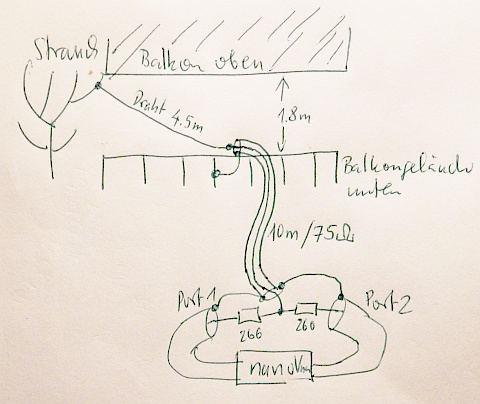 Strauch
Balkon oben
Draht 4.5m
1.8m
Balkongeländer
unten
10m/75Ω
Port 1
Port 2
266
260
nanoVna